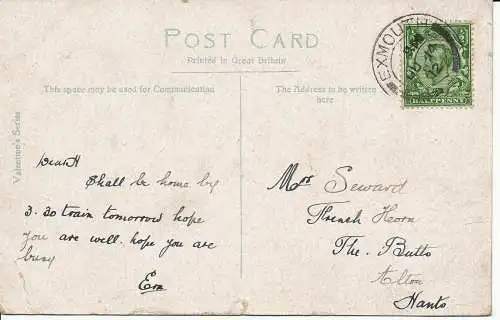 POST CARD
Printed in Great Britain
This space may be used for Communication
The Address to be written
here
Valentine's Series
EXMOUTH
HALFPENNY
Dear H
Shall be home by
3.30 train tomorrow hope
you are well. hope you are
busy
Em
Mr Seward
French Horn
The. Butts
Alton
Hants